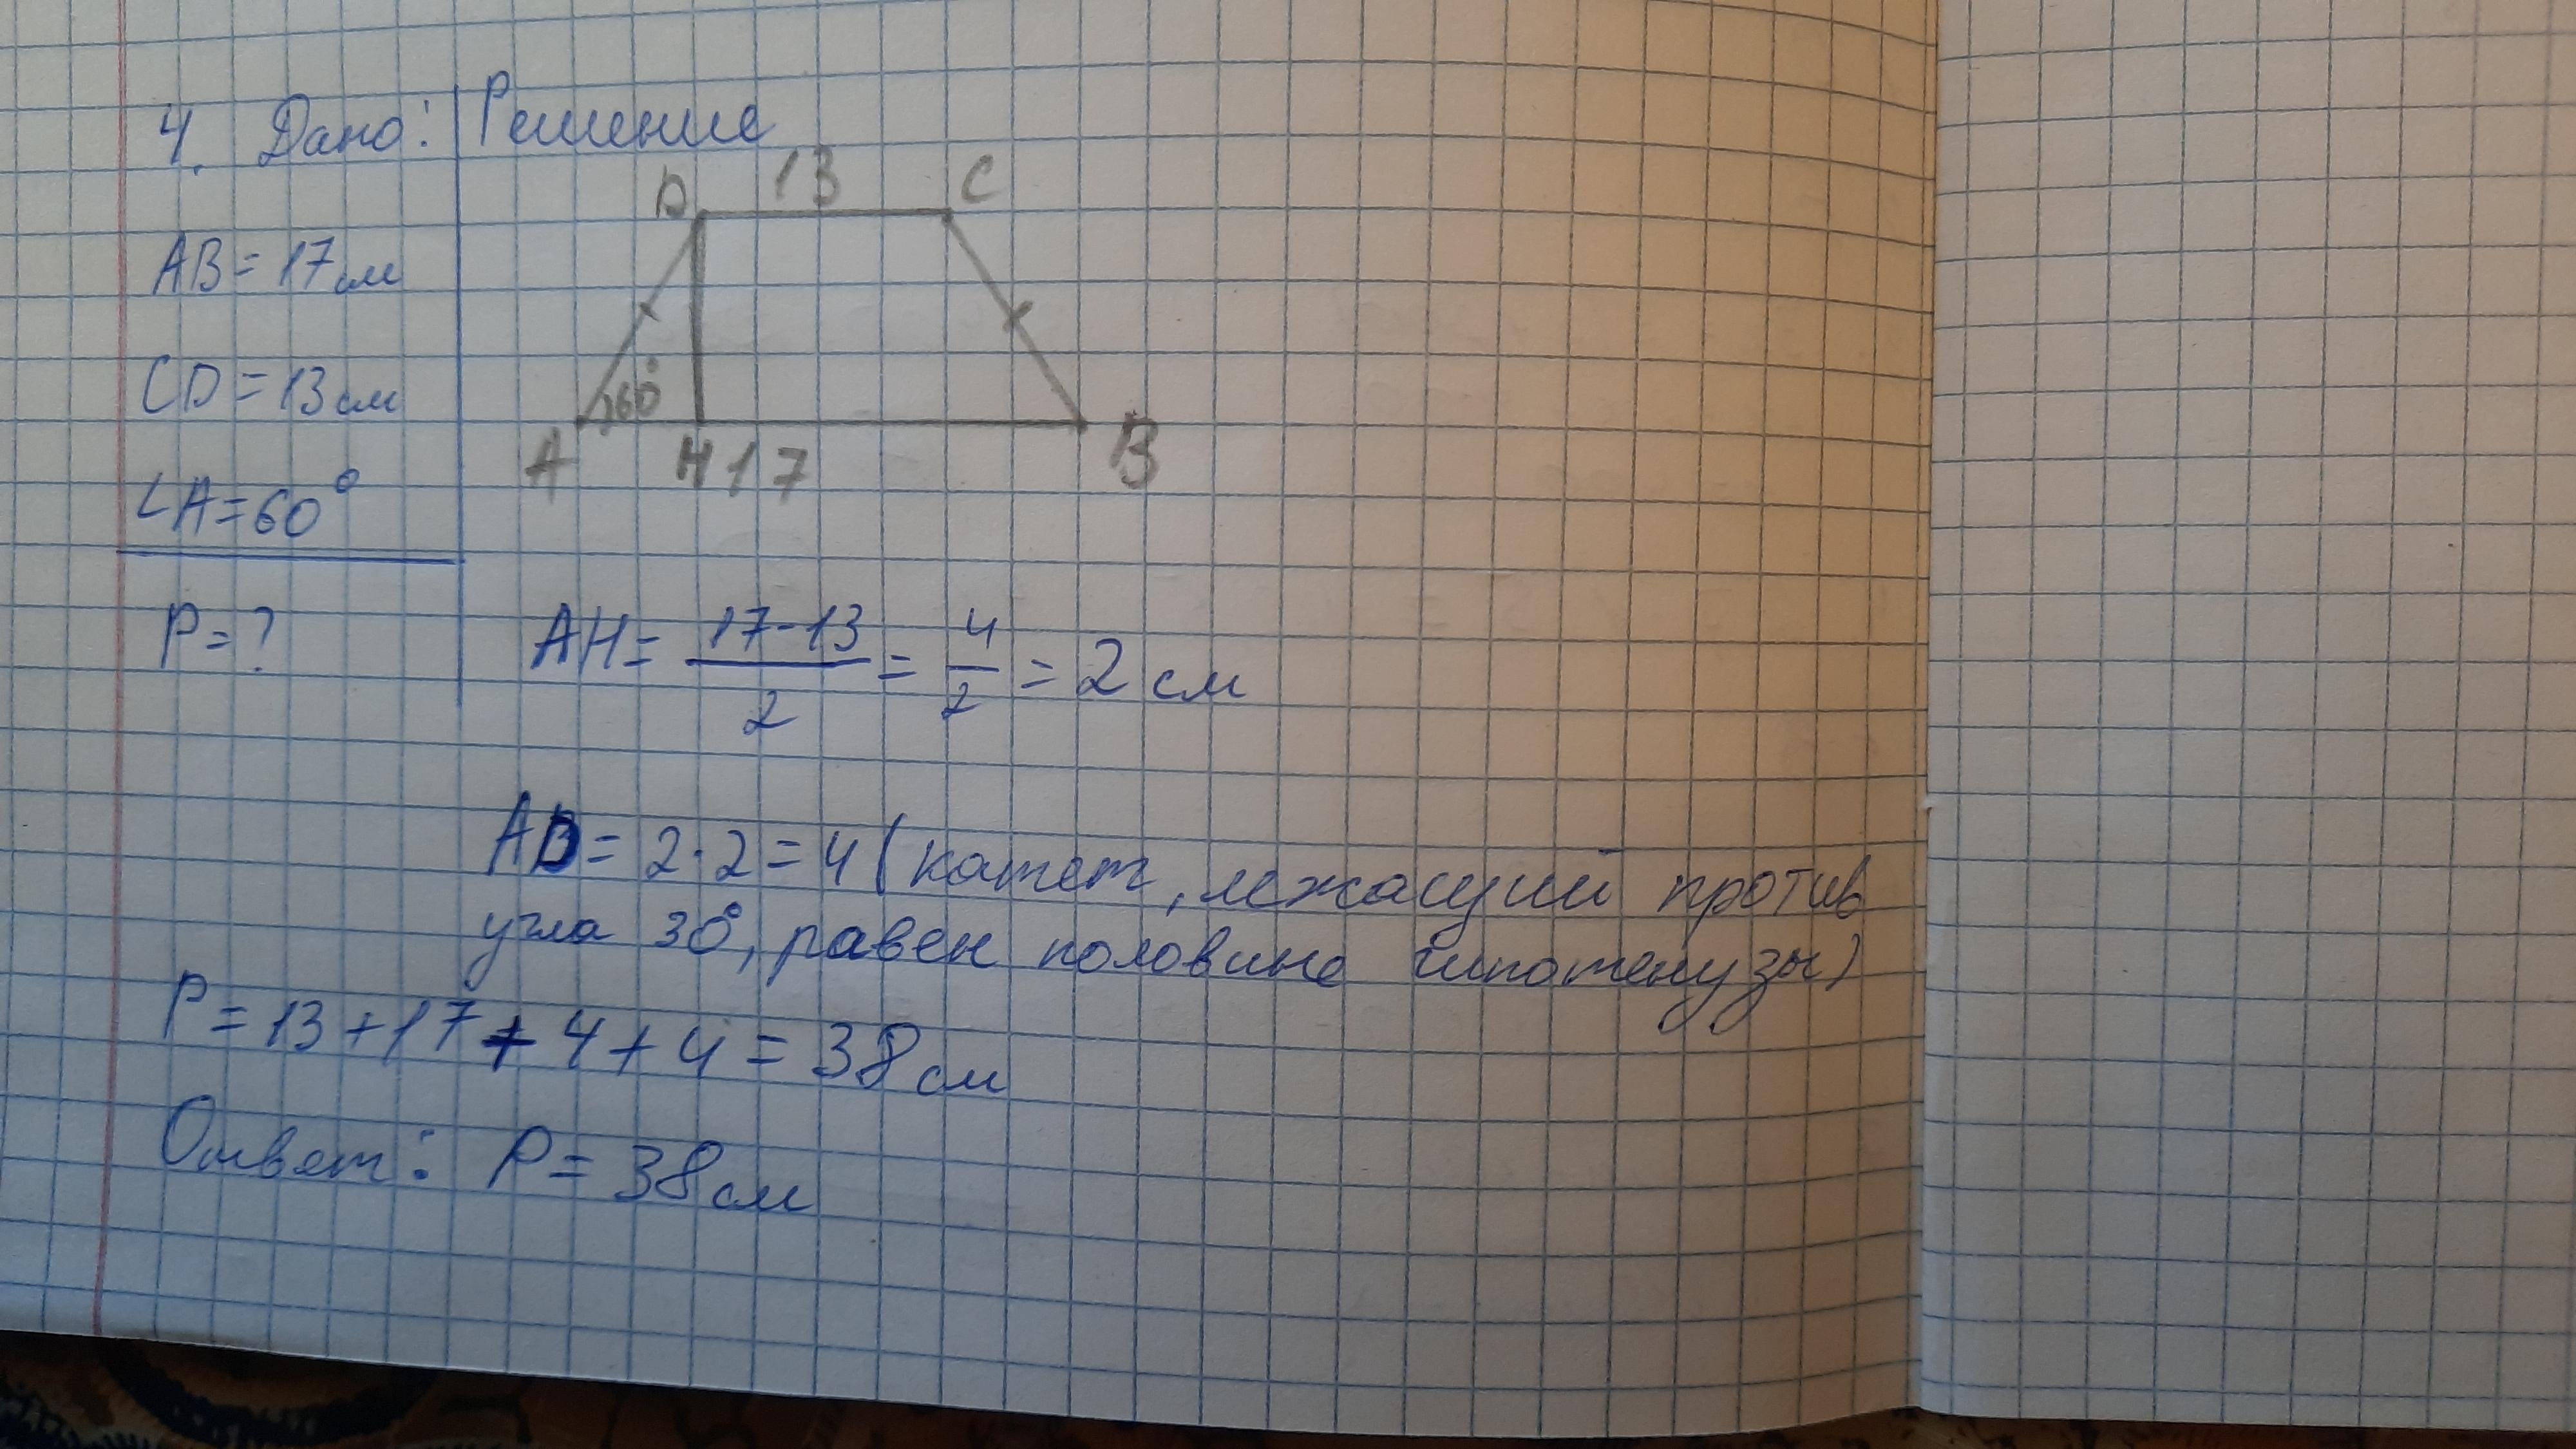 4. Дано: Решение
D 13 C
AB = 17 см
CD = 13 см
60°
A H 17 B
∠A = 60°
P = ?
AH = 17-13/2 = 4/2 = 2 см
AD = 2·2 = 4 (катет, лежащий против
угла 30°, равен половине гипотенузы)
P = 13 + 17 + 4 + 4 = 38 см
Ответ: P = 38 см